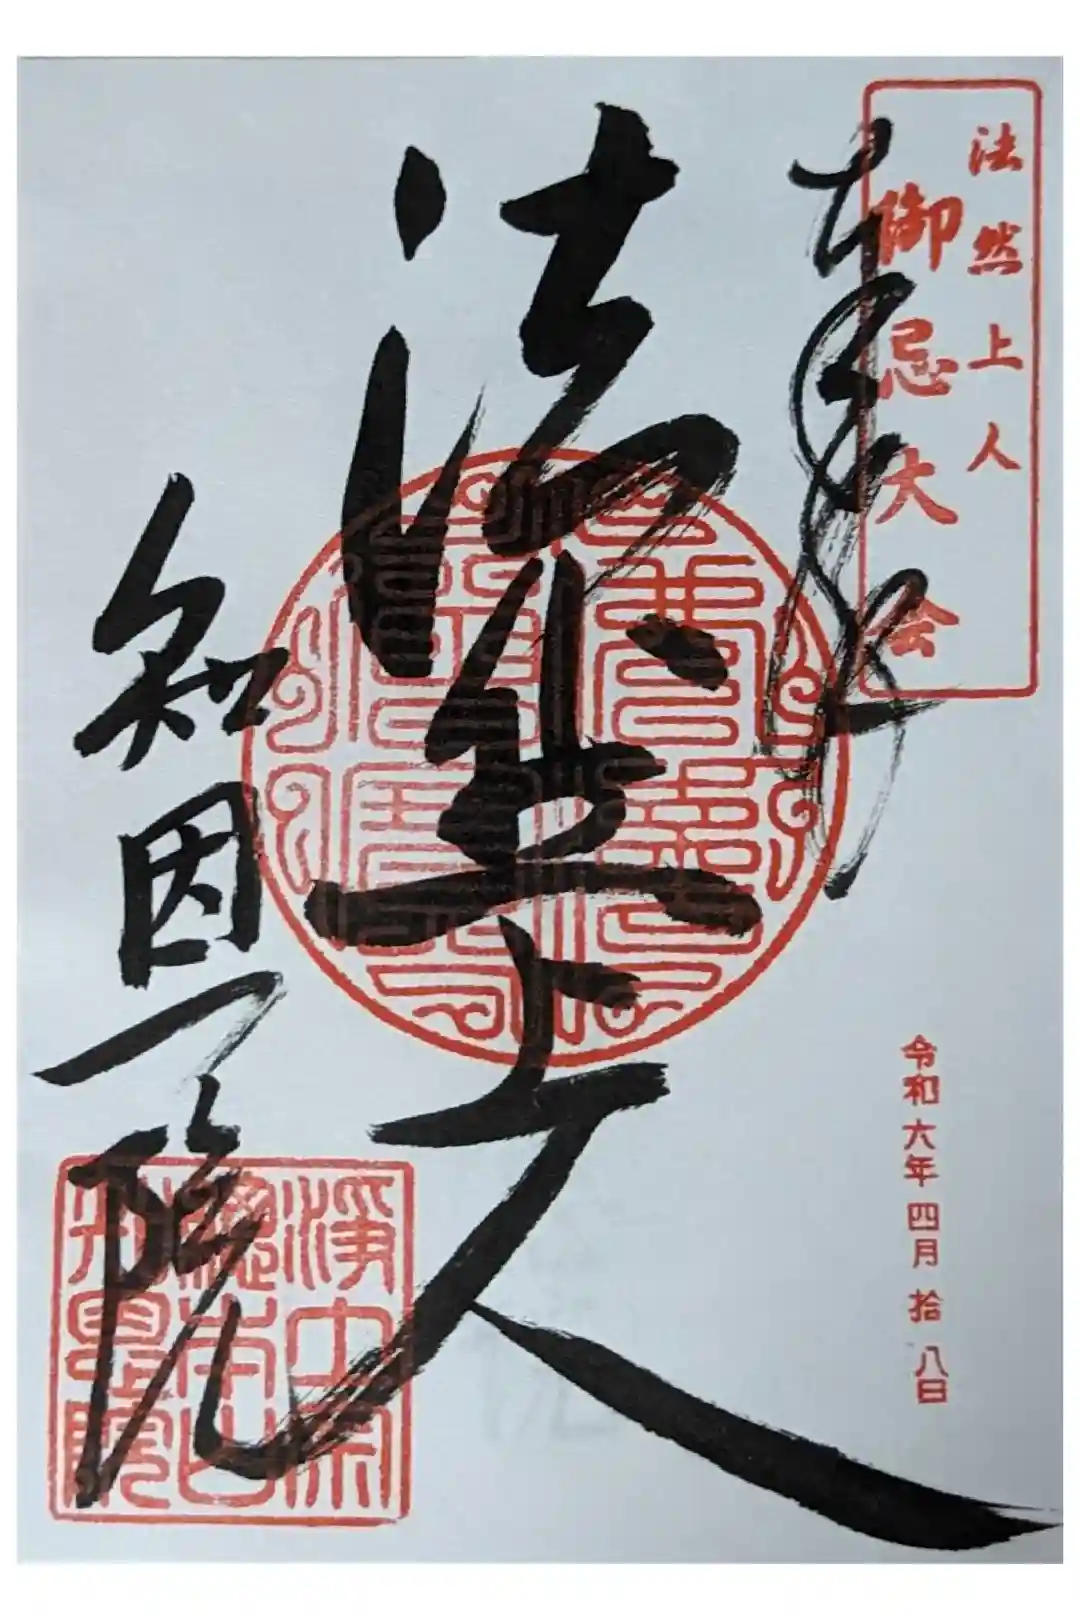 法然上人
御忌大会
奉拝
法然上人
知恩院
浄土宗
総本山
知恩院
令和六年四月拾八日